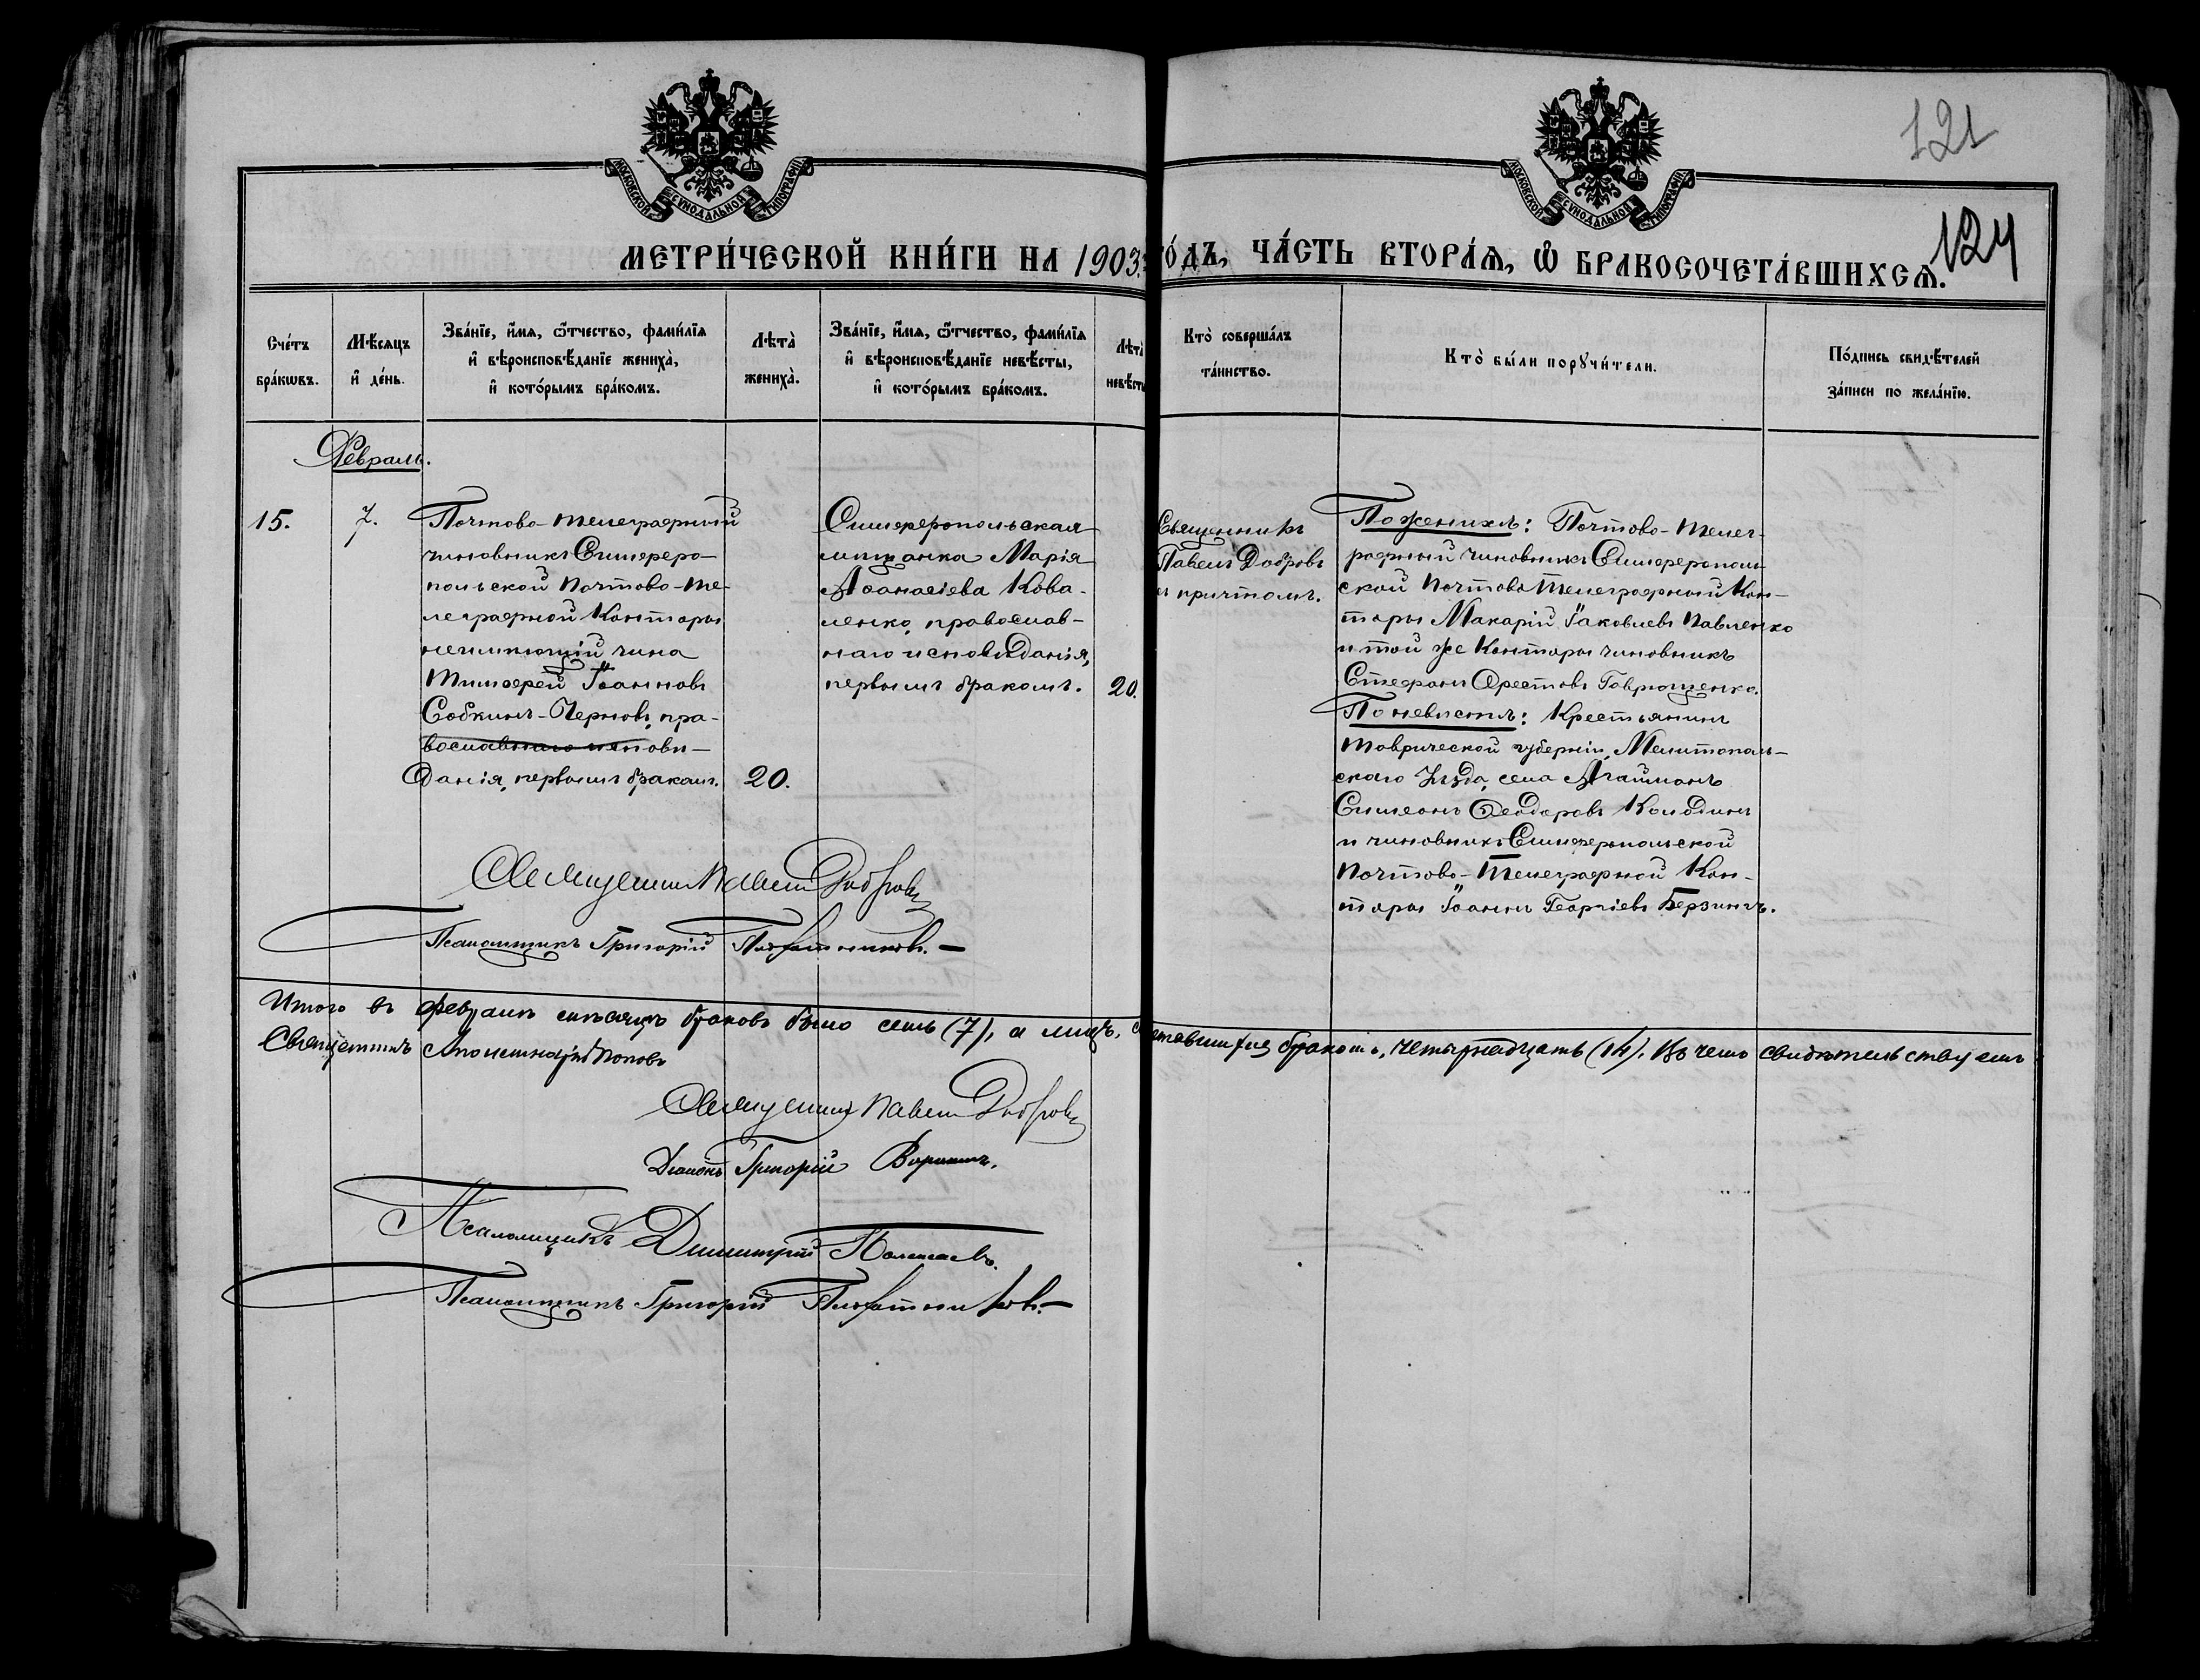 МОСКОВСКОЙ СѴНОДАЛЬНОЙ ТИПОГРАФІИ
МОСКОВСКОЙ СѴНОДАЛЬНОЙ ТИПОГРАФІИ
121
124
МЕТРИ́ЧЕСКОЙ КНИ́ГИ НА 1903 го́дъ, ЧА́СТЬ ВТОРА́Ѧ, Ѽ БРАКОСОЧЕТА́ВШИХСѦ.
Сче́тъ бра́кѡвъ.
Мѣ́сяцъ и҆ де́нь.
Зва́нїе, и҆́мѧ, ѻ҆́тчество, фами́лїѧ
и҆ вѣроисповѣ́данїе жениха̀,
и҆ кото́рымъ бра́комъ.
Лѣта̀ жениха̀.
Зва́нїе, и҆́мѧ, ѻ҆́тчество, фами́лїѧ
и҆ вѣроисповѣ́данїе невѣ́сты,
и҆ кото́рымъ бра́комъ.
Лѣта̀ невѣ́сты
Кто̀ соверша́лъ та́инство.
Кто̀ бы́ли порꙋчи́тели.
По́дпись свидѣ́телей
за́писи по жела́нїю.
Февраль.
15.
7.
Почтово-телеграфный
чиновникъ Симферо-
польской Почтово-те-
леграфной Конторы
неимѣющій чина
Тимофей Іоанновъ
Собкинъ-Черновъ, пра-
вославнаго исповѣ-
данія, первымъ бракомъ.
20.
Симферопольская
мѣщанка Марія
Аѳанасіева Кова-
ленко, православ-
наго исповѣданія,
первымъ бракомъ.
20.
Священникъ
Павелъ Добровъ
съ причтомъ.
По женихѣ: Почтово-телег-
рафный чиновникъ Симферополь
ской Почтово Телеграфной Кон-
торы Макарій Іаковлевъ Павленко
и той же Конторы чиновникъ
Стефанъ Орестовъ Гаврющенко.
По невѣстѣ: Крестьянинъ
Таврической губерніи, Мелитополь-
скаго Уѣзда, села Агайманъ
Симеонъ Ѳеодоровъ Колодинъ
и чиновникъ Симферопольской
Почтово-Телеграфной Кон-
торы Іоаннъ Георгіевъ Берзинъ.
Священникъ Павелъ Добровъ
Псаломщикъ Григорій Плохотниковъ.
Итого въ февралѣ мѣсяцѣ браковъ было семь (7), а лицъ, сочетавшихся бракомъ, четырнадцать (14). Въ чемъ свидѣтельствуемъ:
Священникъ Поповъ
Священникъ Павелъ Добровъ
Діаконъ Григорій
Псаломщикъ Димитрій
Псаломщикъ Григорій Плохотниковъ.